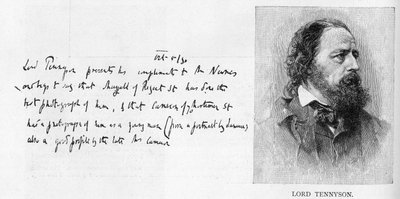 Oct. 5/90
Lord Tennyson presents his compliments to Mr
and begs to say that of Regent St has done the
best photograph of him, & that Cameron of 70 Mortimer St
has a photograph of him as a young man (from a portrait by Laurence)
also a good profile by the late Mrs Cameron
LORD TENNYSON.